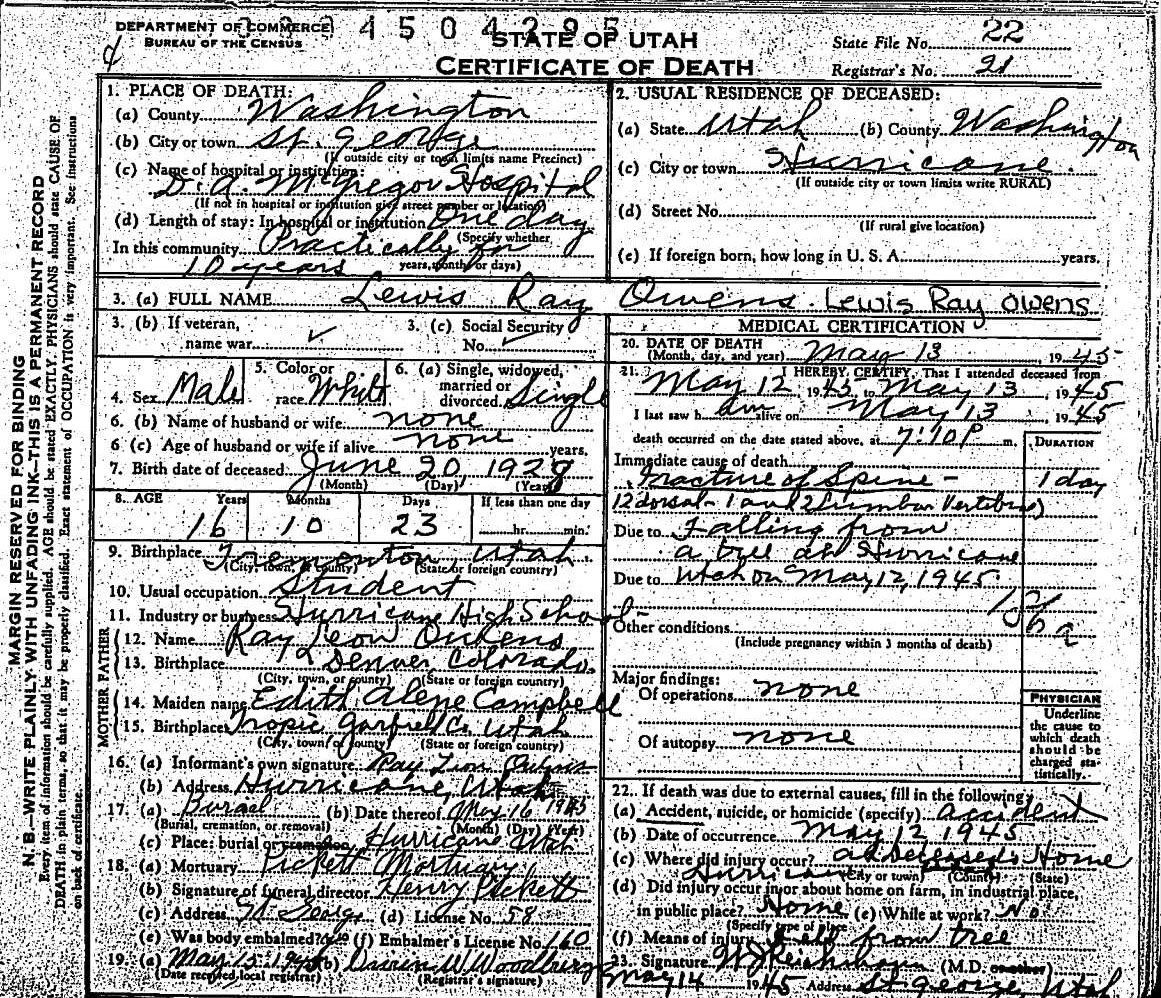 DEPARTMENT OF COMMERCE
BUREAU OF THE CENSUS
4 5 0 4 2 9 5
STATE OF UTAH
CERTIFICATE OF DEATH
State File No. 22
Registrar's No. 21
MARGIN RESERVED FOR BINDING
N. B.—WRITE PLAINLY WITH UNFADING INK—THIS IS A PERMANENT RECORD
Every item of information should be carefully supplied. AGE should be stated EXACTLY. PHYSICIANS should state CAUSE OF
DEATH in plain terms, so that it may be properly classified. Exact statement of OCCUPATION is very important. See instructions
on back of certificate.
1. PLACE OF DEATH:
(a) County Washington
(b) City or town St. George
(If outside city or town limits name Precinct)
(c) Name of hospital or institution:
D. A. McGregor Hospital
(If not in hospital or institution give street number or location)
(d) Length of stay: In hospital or institution One day
(Specify whether
In this community Practically for
10 years years, months or days)
2. USUAL RESIDENCE OF DECEASED:
(a) State Utah (b) County Washington
(c) City or town Hurricane
(If outside city or town limits write RURAL)
(d) Street No.
(If rural give location)
(e) If foreign born, how long in U. S. A. years.
3. (a) FULL NAME Lewis Ray Owens. Lewis Ray Owens
3. (b) If veteran,
name war ✓
3. (c) Social Security
No.
4. Sex Male
5. Color or
race White
6. (a) Single, widowed,
married or
divorced. Single
6. (b) Name of husband or wife none
6 (c) Age of husband or wife if alive none years.
7. Birth date of deceased June 20, 1928
(Month) (Day) (Year)
8. AGE Years Months Days If less than one day
16 10 23 hr. min.
9. Birthplace Tremonton Utah
(City, town, or county) (State or foreign country)
10. Usual occupation Student
11. Industry or business Hurricane High School
FATHER
12. Name Ray Leon Owens
13. Birthplace Denver Colorado.
(City, town, or county) (State or foreign country)
MOTHER
14. Maiden name Edith Alene Campbell
15. Birthplace Tropic Garfield Co. Utah
(City, town, or county) (State or foreign country)
16. (a) Informant's own signature Ray Leon Owens
(b) Address Hurricane, Utah
17. (a) Burial (b) Date thereof May 16 1945
(Burial, cremation, or removal) (Month) (Day) (Year)
(c) Place: burial or cremation Hurricane Utah
18. (a) Mortuary Pickett Mortuary
(b) Signature of funeral director Henry Pickett
(c) Address St George (d) License No. 58
(e) Was body embalmed? yes (f) Embalmer's License No. 160
19. (a) May 15, 1945 (b) W. Woodbury
(Date received local registrar) (Registrar's signature)
MEDICAL CERTIFICATION
20. DATE OF DEATH
(Month, day, and year) May 13, 1945
21. I HEREBY CERTIFY, That I attended deceased from
May 12, 1945, to May 13, 1945
I last saw h im alive on May 13, 1945
death occurred on the date stated above, at 7:10 P. m.
DURATION
Immediate cause of death
Fracture of Spine - 1 day
12 dorsal - 1 and 2 lumbar Vertebrae)
Due to Falling from
a tree at Hurricane
Due to Utah on May 12, 1945.
Other conditions
(Include pregnancy within 3 months of death)
Major findings:
Of operations none
Of autopsy none
PHYSICIAN
Underline
the cause to
which death
should be
charged sta-
tistically.
22. If death was due to external causes, fill in the following:
(a) Accident, suicide, or homicide (specify) Accident
(b) Date of occurrence May 12 1945
(c) Where did injury occur? at deceased's Home
Hurricane Utah
(City or town) (County) (State)
(d) Did injury occur in or about home on farm, in industrial place,
in public place? Home (e) While at work? No
(Specify type of place
(f) Means of injury Fell from tree
23. Signature (M.D. or other)
May 14 1945 Address St George, Utah